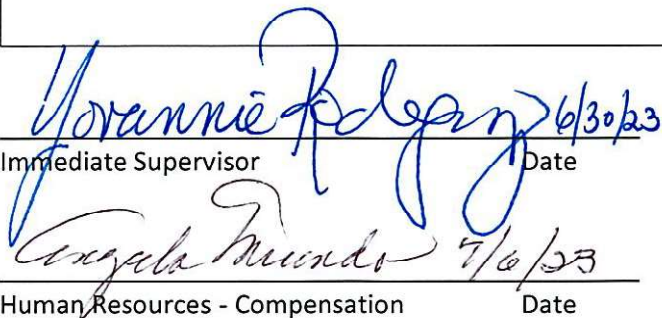 Yovannie Rodriguez 6/30/23
Immediate Supervisor Date
Angela Miundo 7/6/23
Human Resources - Compensation Date